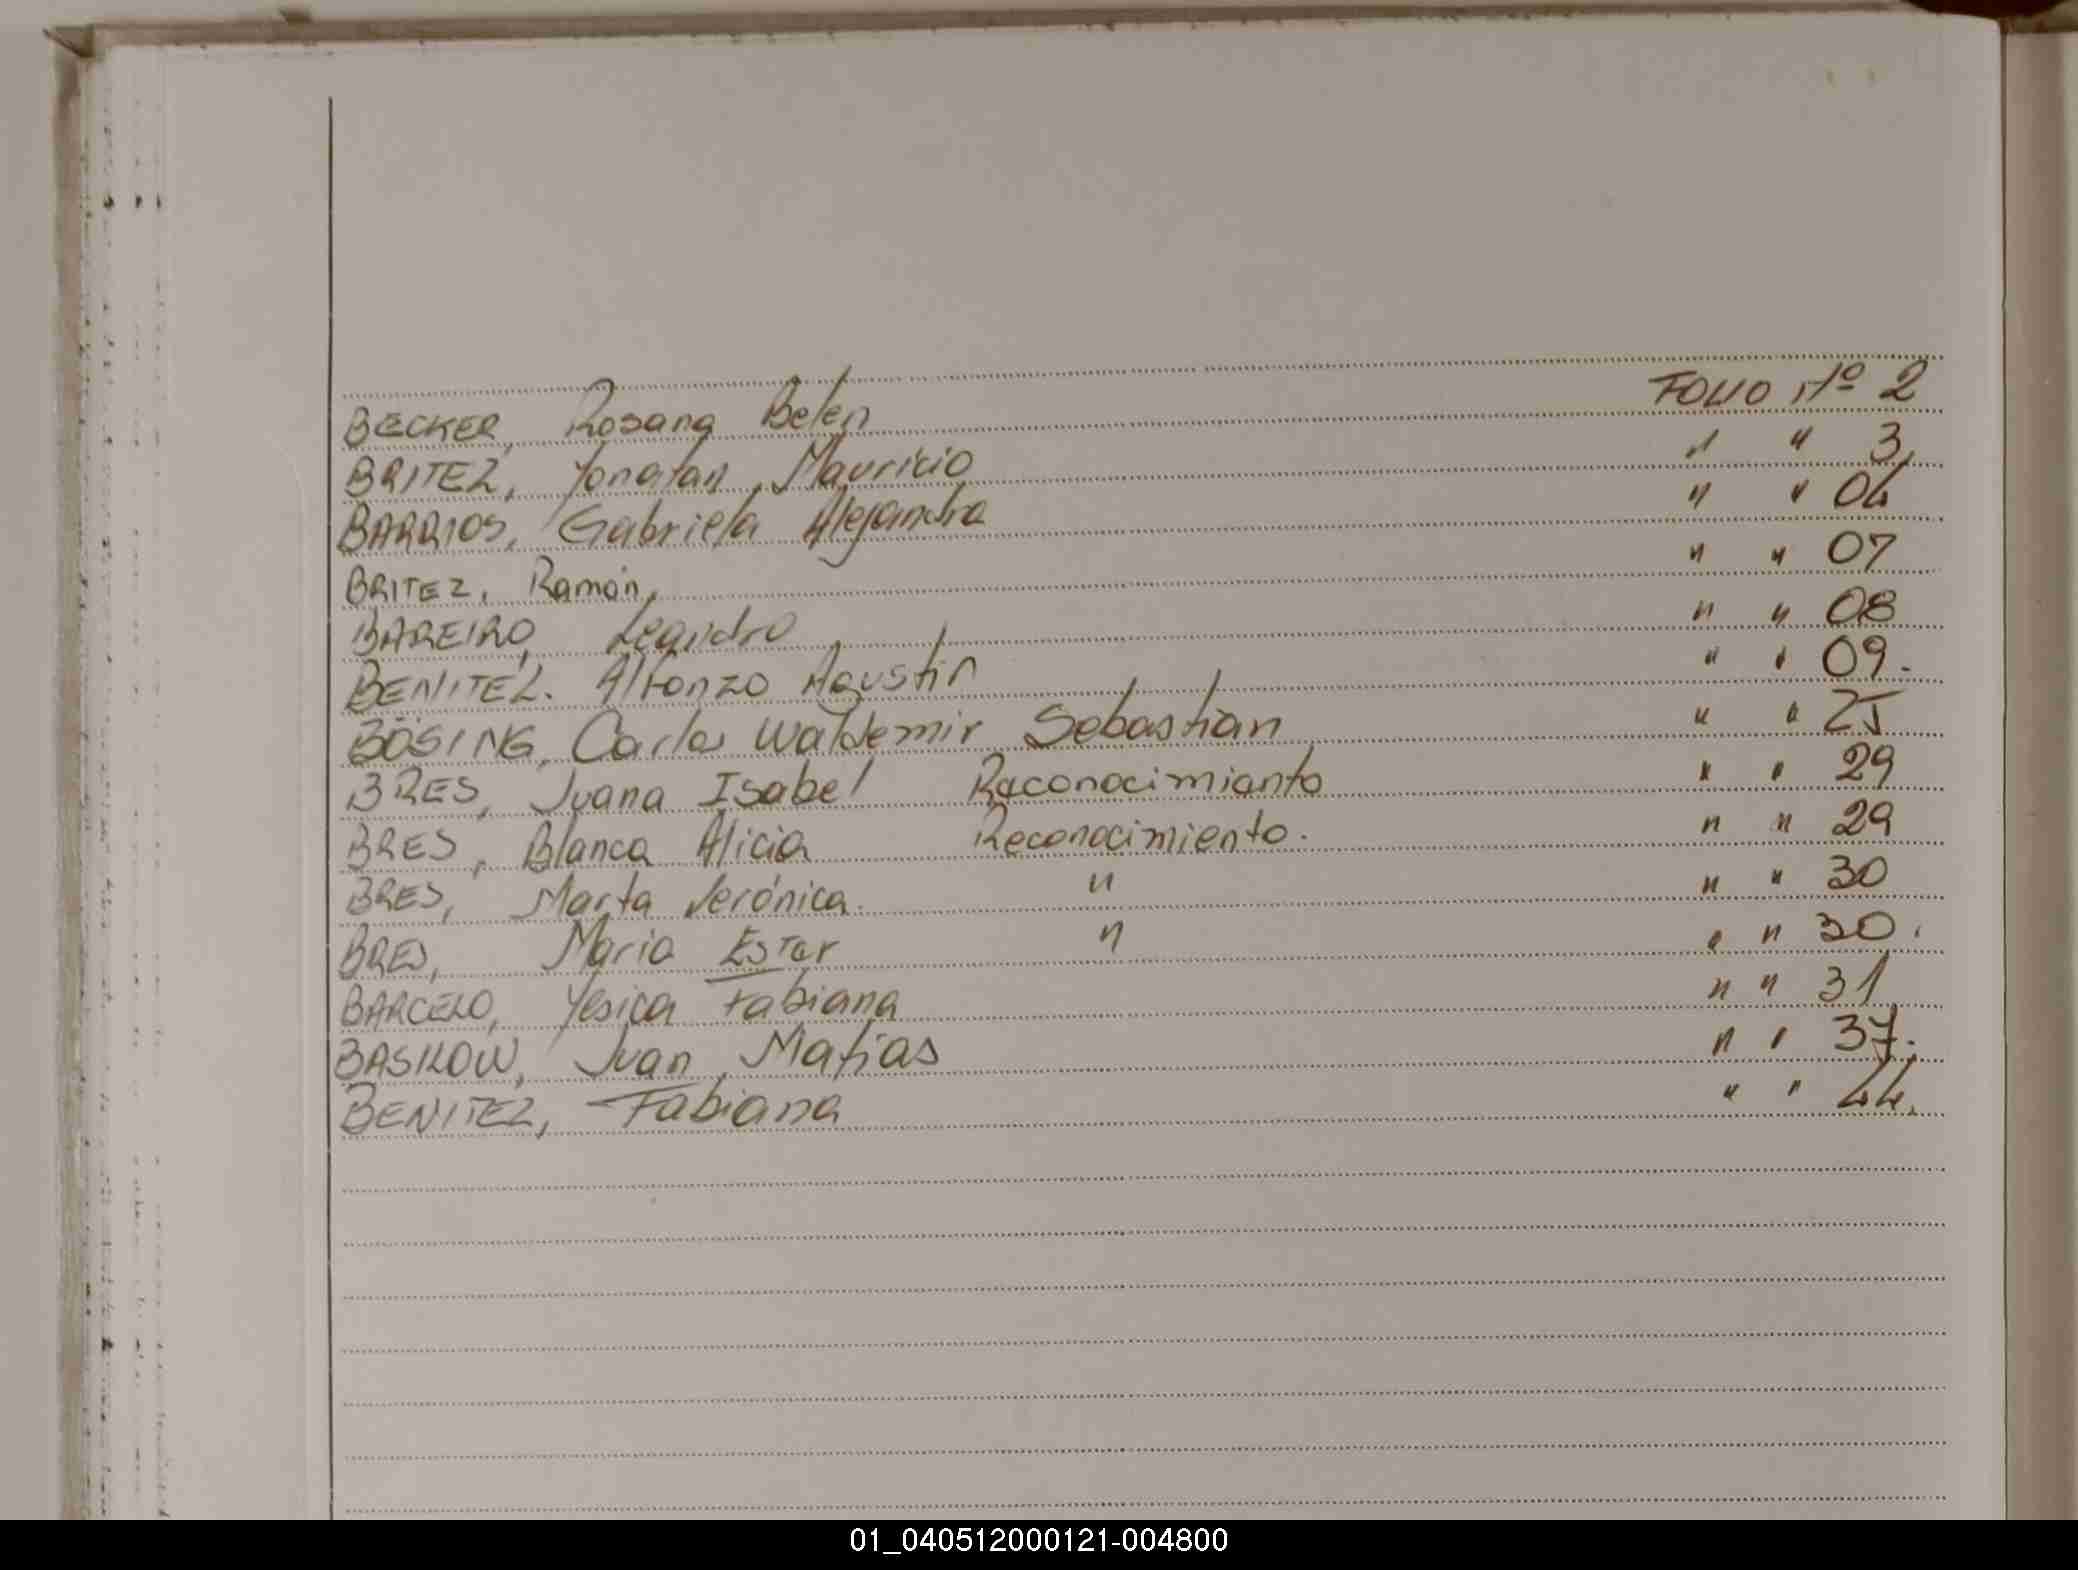 BECKER, Rosana Belen FOLIO Nº 2
BRITEZ, Yonatan Mauricio " " 3
BARRIOS, Gabriela Alejandra " " 04
BRITEZ, Ramón, " " 07
BAREIRO, Leandro " " 08
BENITEZ. Alfonzo Agustin " " 09.
BÖSING, Carlos Waldemir Sebastian " " 25
BRES, Juana Isabel Reconocimiento " " 29
BRES, Blanca Alicia Reconocimiento. " " 29
BRES, Marta Verónica. " " " 30
BRES, Maria Ester " " " 30.
BARCELO, Yesica Fabiana " " 31
BASILOW, Juan Matias " " 37.
BENITEZ, Fabiana " " 44.
01_040512000121-004800